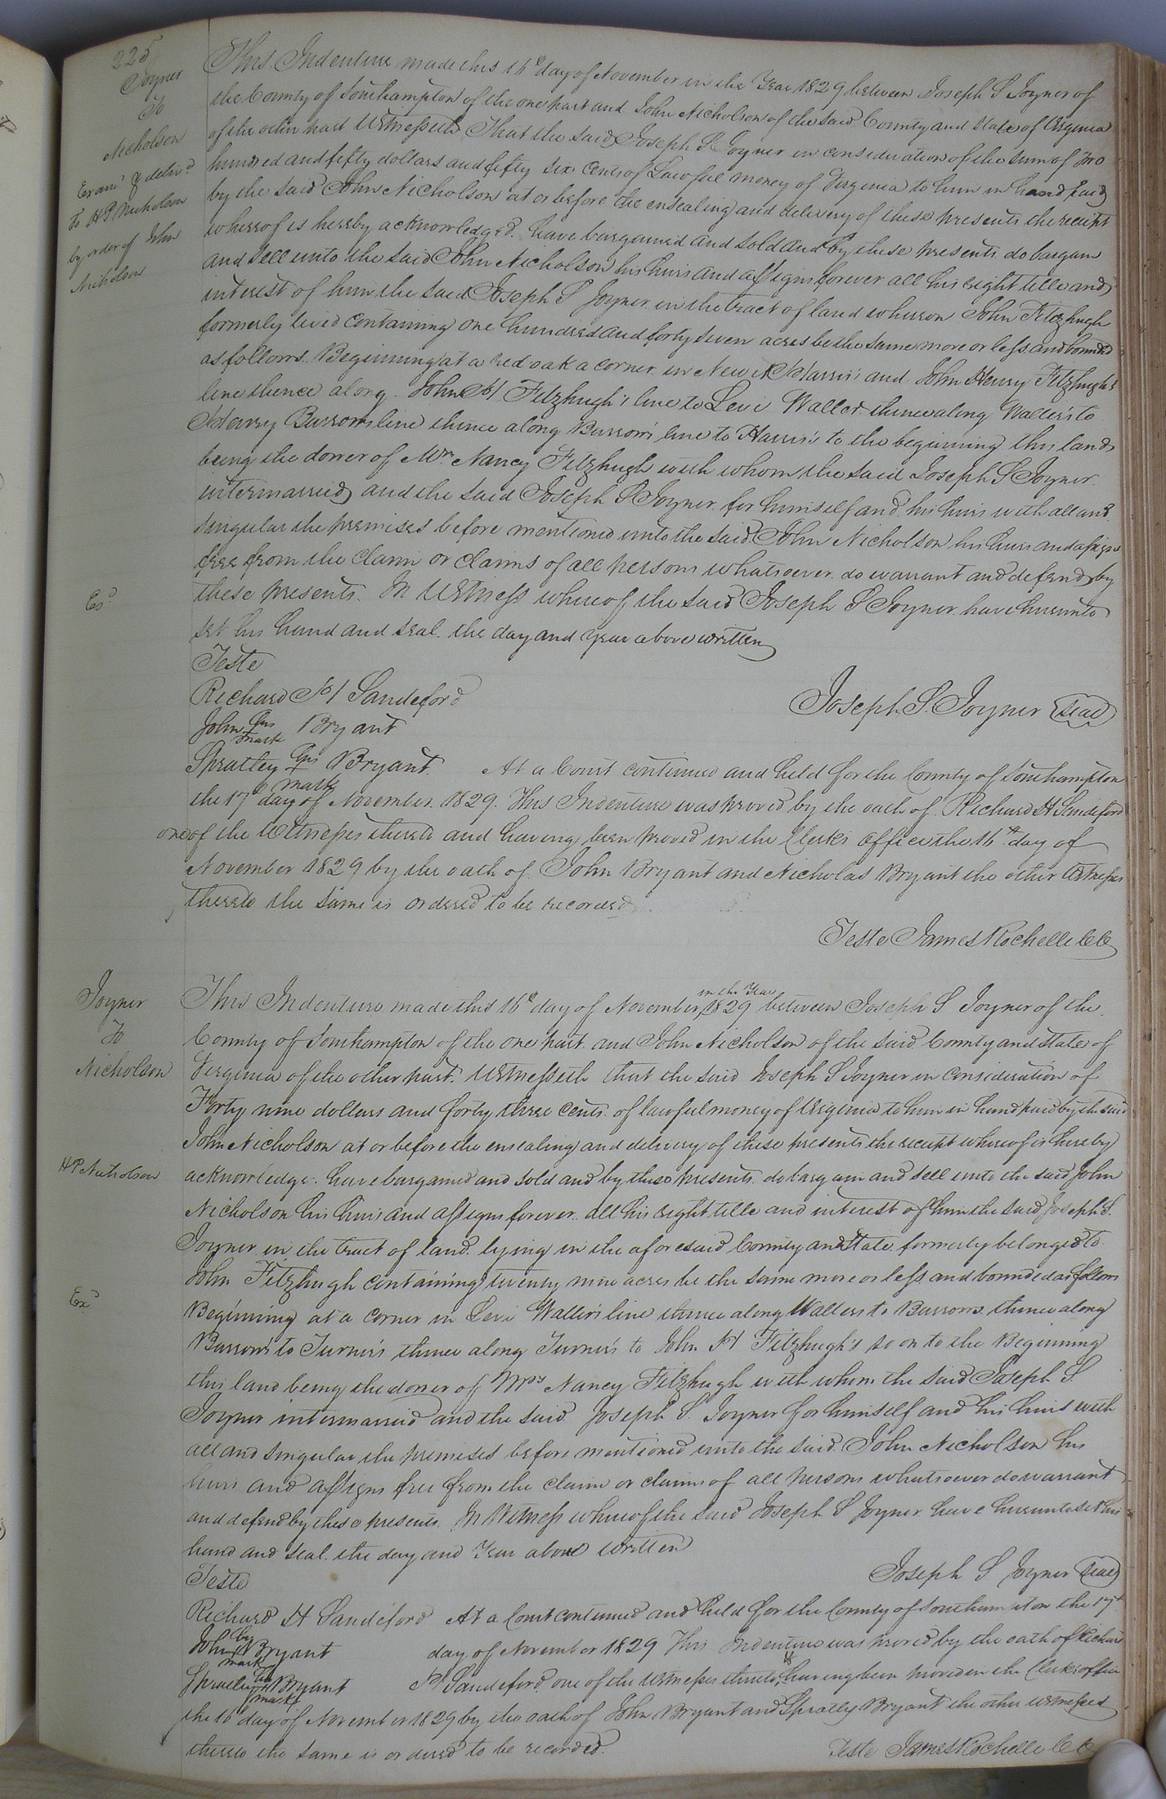 225
Joyner
To
Nicholson
Exam'd & deliv'd
To H P Nicholson
by order of John
Nicholson
This Indenture made this 16th day of November in the Year 1829 between Joseph S Joyner of
the County of Southampton of the one part and John Nicholson of the said County and State of Virginia
of the other part Witnesseth That the said Joseph S Joyner in consideration of the sum of Two
hundred and fifty dollars and fifty six cents of Lawful money of Virginia to him in hand paid
by the said John Nicholson at or before the ensealing and delivery of these presents the receipt
whereof is hereby acknowledged. have bargained and sold and by these presents do bargain
and sell unto the said John Nicholson his heirs and assigns forever all his right title and
interest of him the said Joseph S Joyner in the tract of land whereon John Fitzhugh
formerly lived containing one hundred and forty seven acres be the same more or less and bounded
as follows. Beginning at a red oak a corner in Newit Harris's and John Henry Fitzhugh's
line thence along John H Fitzhugh's line to Levi Waller thence along Waller's to
Henry Barrow's line thence along Barrow's line to Harris's to the beginning this land
being the dower of Mrs Nancy Fitzhugh with whom the said Joseph S Joyner
intermarried and the said Joseph S Joyner for himself and his heirs with all and
singular the premises before mentioned unto the said John Nicholson his heirs and assigns
free from the claim or claims of all persons whatsoever do warrant and defend by
these presents. In Witness whereof the said Joseph S Joyner have hereunto
set his hand and seal the day and year above written
Ex'd
Teste
Richard H Sandeford
Joseph S. Joyner (Seal)
John his mark Bryant
Spratley his mark Bryant. At a Court continued and held for the County of Southampton
the 17th day of November 1829. This Indenture was proved by the oath of Richard H Sandeford
one of the Witnesses thereto and having been proved in the Clerks office the 16th day of
November 1829 by the oath of John Bryant and Nicholas Bryant the other Witnesses
thereto the same is ordered to be recorded.
Teste James Rochelle CC
Joyner
To
Nicholson
H P Nicholson
Ex'd
This Indenture made this 16th day of November in the Year 1829 between Joseph S Joyner of the
County of Southampton of the one part and John Nicholson of the said County and State of
Virginia of the other part. Witnesseth that the said Joseph S Joyner in consideration of
Forty nine dollars and forty three cents of lawful money of Virginia to him in hand paid by the said
John Nicholson at or before the ensealing and delivery of these presents the receipt whereof is hereby
acknowledge. have bargained and sold and by these presents do bargain and sell unto the said John
Nicholson his heirs and assigns forever. all his right title and interest of him the said Joseph S.
Joyner in the tract of land lying in the aforesaid County and State formerly belonged to
John Fitzhugh containing twenty nine acres be the same more or less and bounded as follows
Beginning at a corner in Levi Waller's line thence along Wallers to Barrows thence along
Barrow's to Turner's thence along Turner's to John H Fitzhugh's so on to the Beginning
this land being the dower of Mrs Nancy Fitzhugh with whom the said Joseph S.
Joyner intermarried and the said Joseph S. Joyner for himself and his heirs with
all and singular the premises before mentioned unto the said John Nicholson his
heirs and assigns free from the claim or claims of all persons whatsoever do warrant
and defend by these presents. In Witness whereof the said Joseph S Joyner have hereunto set his
hand and seal the day and Year above written
Joseph S Joyner (Seal)
Teste
Richard H Sandeford At a Court continued and held for the County of Southampton the 17th
John his mark Bryant day of November 1829 This Indenture was proved by the oath of Richard
Spratley his mark Bryant H Sandeford one of the Witnesses thereto & having been proved in the Clerks office
the 16 day of November 1829 by the oath of John Bryant and Spratly Bryant the other witnesses
thereto the same is ordered to be recorded.
Teste James Rochelle CC